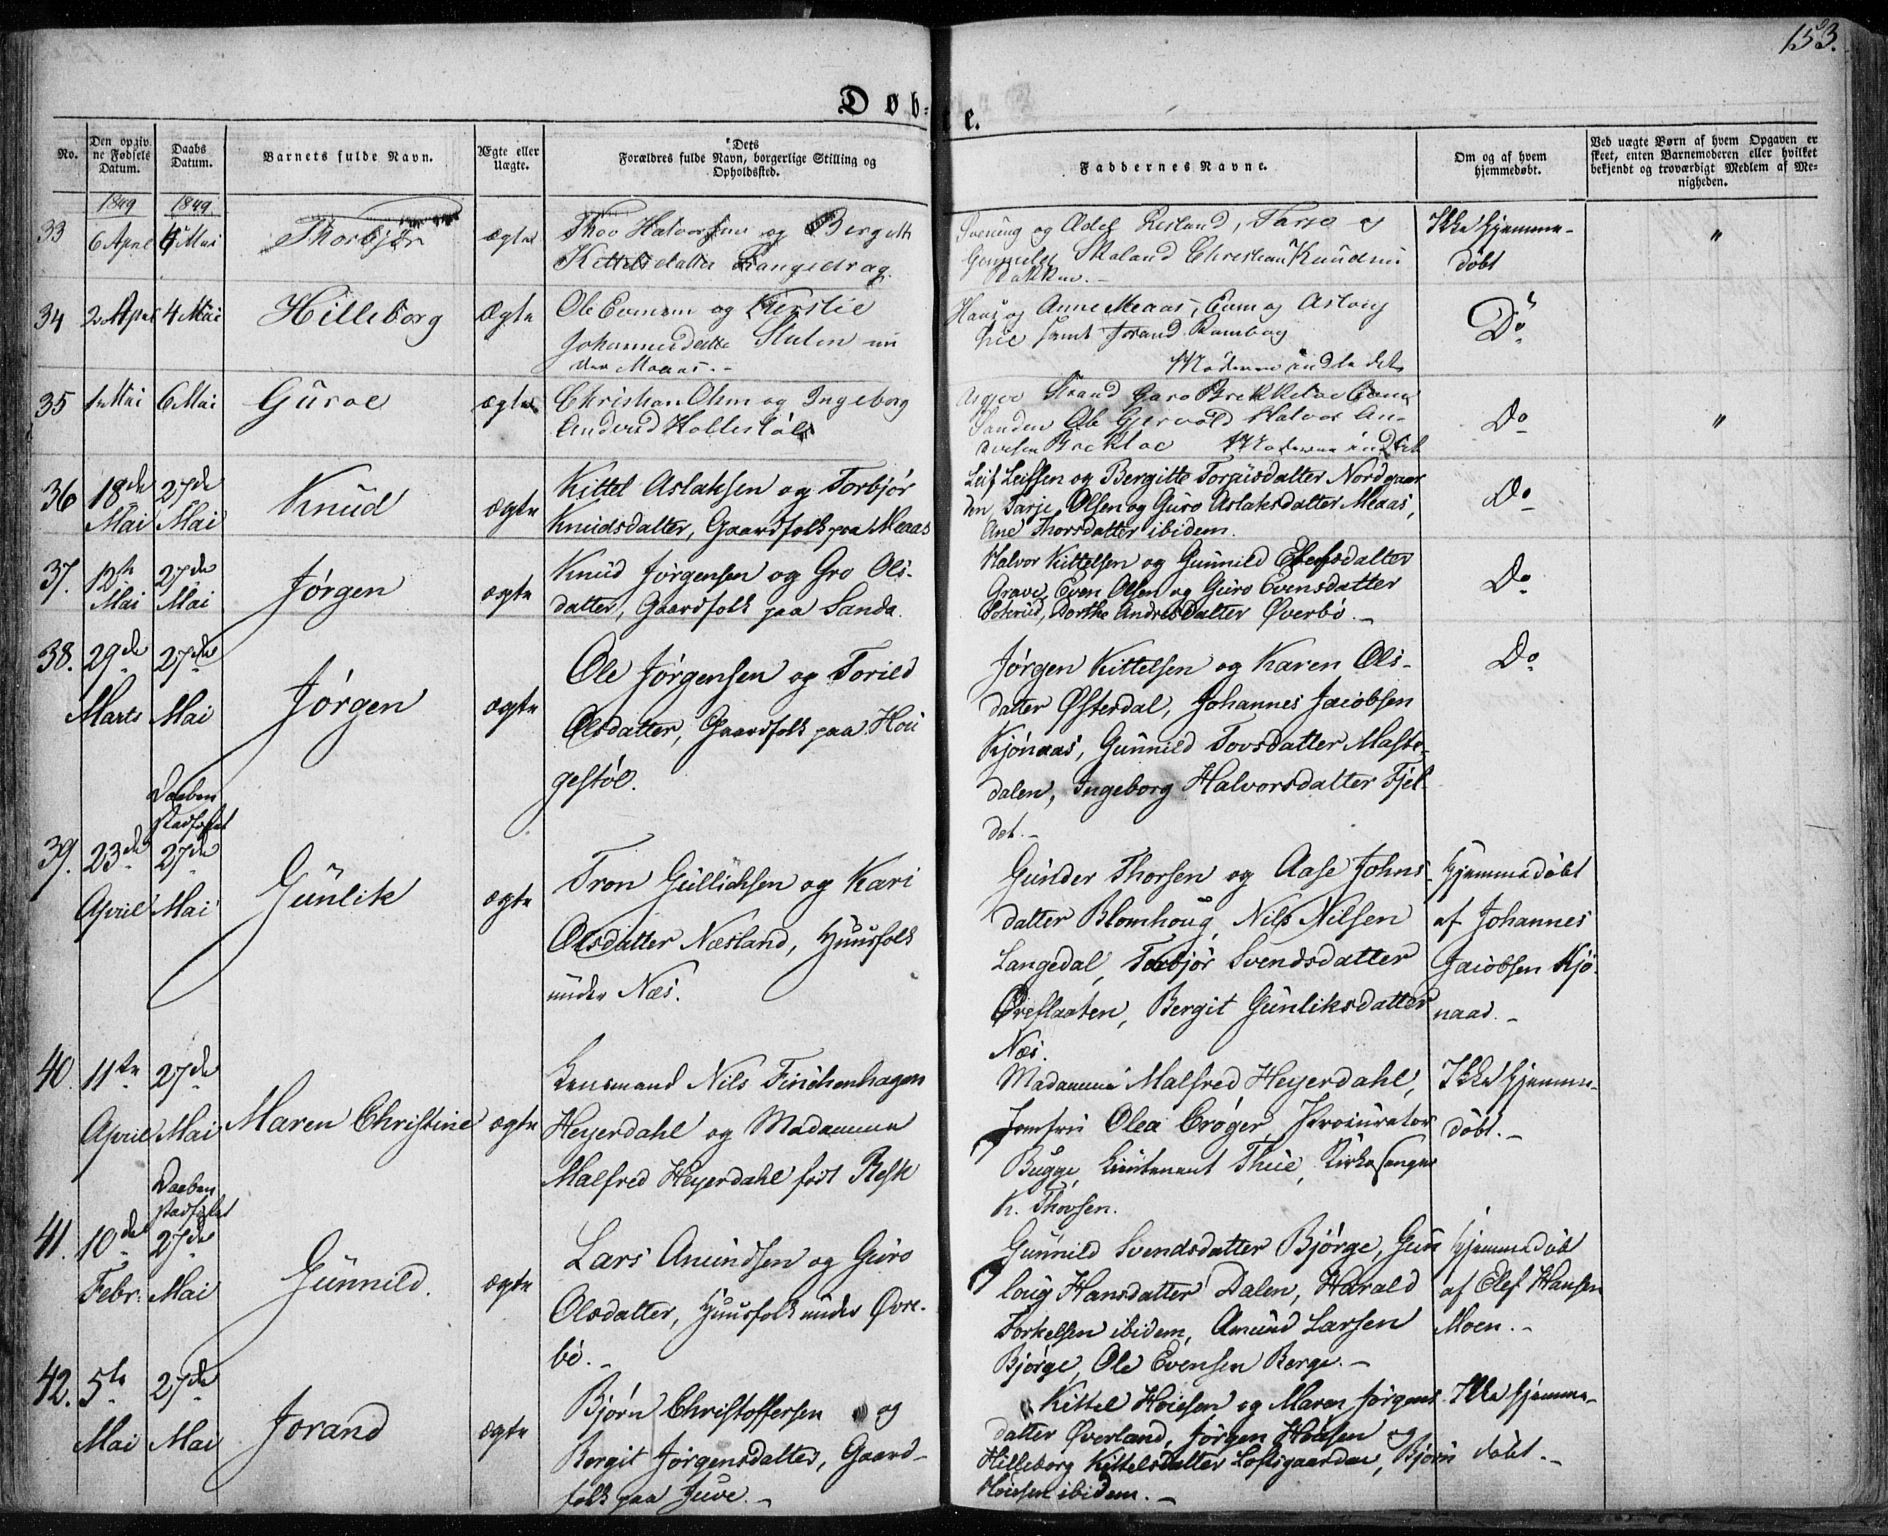 153.
Døb- e.
No.
Den opgiv-
ne Fødsels
Datum.
Daabs
Datum.
Barnets fulde Navn.
Ægte eller
Uægte.
Dets
Forældres fulde Navn, borgerlige Stilling og
Opholdssted.
Faddernes Navne.
Om og af hvem
hjemmedøbt.
Ved uægte Børn af hvem Opgaven er
skeet, enten Barnemoderen eller hvilket
bekjendt og troværdigt Medlem af Me-
nigheden.
1849 1849
33 6 April Mai Thorbjør ægte
Thov Halvorsen og Bergitte
Kittelsdatter Langedrag.
Svening og Adel Risland, Tarje og
Gunnild Skaland Christian Knudsen
Ikke hjemme-
døbt
"
34 2 April 4 Mai Hilleborg Ægte
Ole Evensen og Kirstie
Johannesdatter Stulen un
der Moaas.-
Hans og Anne Meaas, Even og Aslaug
Lie samt Jorand Rambag
Moderen indledet
Do
35 1 Mai 6 Mai Guroe ægte
Christian Olsen og Ingeborg
Andersd Hollestøl
Strand Garo Brekketoe
Sanden Ole Gjervold Halvor An-
dersen Moderen indled
Do
"
36 18de Mai 27de Mai Knud ægte
Kittel Aslaksen og Torbjør
Knudsdatter, Gaardfolk paa Meaas
Leif Leifsen og Bergitte Torjusdatter Nordgaar
den, Tarje Olsen og Guro Aslaksdatter Meaas,
Ane Thorsdatter ibidem.
Do
37. 12te Mai 27de Mai Jørgen ægte
Knud Jørgensen og Gro Ols-
datter, Gaardfolk paa Sanda.
Halvor Kittelsen og Gunnild Olefsdatter
Grave, Even Olsen og Guro Evensdatter
Dorthe Andresdatter Øverbø.-
Do
38. 29de Marts 27de Mai Jørgen ægte
Ole Jørgensen og Torild
Olsdatter, Gaardfolk paa Hou
gestøl.
Jørgen Kittelsen og Karen Ols-
datter Østerdal, Johannes Jacobsen
Kjønaas, Gunnild Tovsdatter Maste-
dalen, Ingeborg Halvorsdatter Fjel-
det.-
Do
Daaben
stadfæstet
39. 23de April 27de Mai Gunlik ægte
Tron Gullichsen og Kari
Olsdatter Næsland, Huusfolk
under Næs.
Gunder Thorsen og Aase Johns-
datter Blomhoug, Nils Nilsen
Langedal, Torbjør Svendsdatter
Øreflaaten, Bergit Gunliksdatter
Næs.
Hjemmedøbt
af Johannes
Jacobsen Kjø-
naas.-
40. 11te April 27de Mai Maren Christine ægte
Lensmand Nils Finchenhagen
Heyerdahl og Madamme
Malfred Heyerdahl født Resk
Madamme Malfred Heyerdahl,
Jomfru Olea Crøger, Procurator
Bugge, Lieutenant Thue, Kirkesanger
K. Thorsen.
Ikke hjemme-
døbt.-
Daaben
stadfæstet
41. 10de Febr. 27de Mai Gunnild. ægte
Lars Amundsen og Guro
Olsdatter, Huusfolk under Øvre-
bø.-
Gunnild Svendsdatter Bjørge, Gun
loug Hansdatter Dalen, Harald
Torkelsen ibidem, Amund Larsen
Bjørge, Ole Evensen Berge.-
Hjemmedøbt
af Olef Hansen
Moen.-
42. 5te Mai 27de Mai Jorand ægte
Bjørn Christoffersen og
Bergit Jørgensdatter, Gaard-
folk paa Juve.-
Kittel Høiesen og Maren Jørgens-
datter Øverland, Jørgen Høiesen og
Hilleborg Kittelsdatter Loftsgaarden, Bjørn
Høiesen ibidem.-
Ikke hjemme-
døbt.-